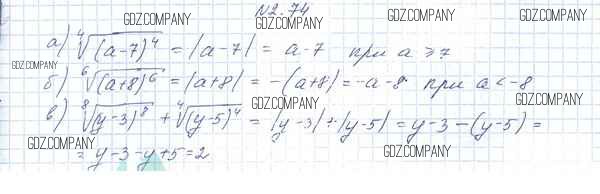 GDZ.COMPANY GDZ.COMPANY GDZ.COMPANY GDZ.COMPANY
№2.74
а) ⁴√(a-7)⁴ = |a-7| = a-7 при a ≥ 7
GDZ.COMPANY
б) ⁶√(a+8)⁶ = |a+8| = -(a+8) = -a-8 при a < -8
GDZ.COMPANY GDZ.COMPANY
в) ⁸√(y-3)⁸ + ⁴√(y-5)⁴ = |y-3| + |y-5| = y-3-(y-5) =
GDZ.COMPANY GDZ.COMPANY
= y-3-y+5=2